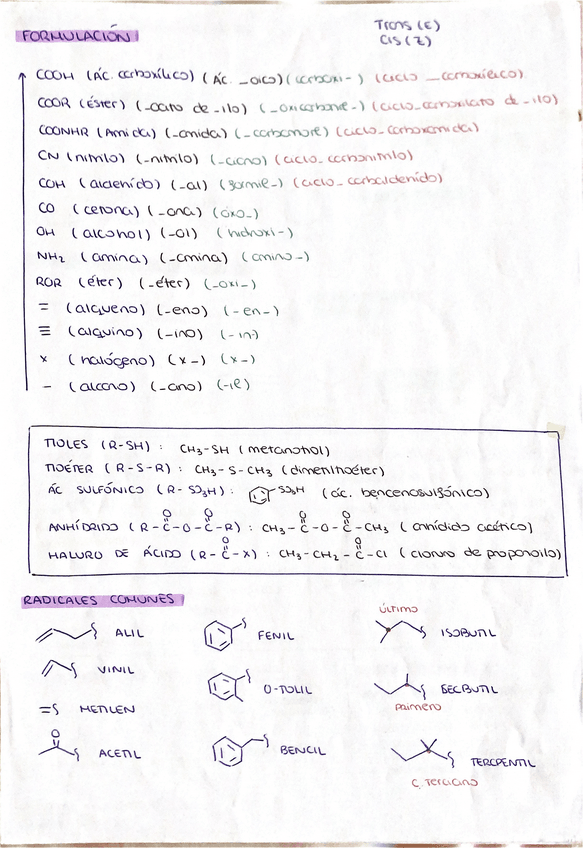 FORMULACIÓN
Trans (E)
Cis (Z)
COOH (Ác. carboxílico) (Ác. _oico) (carboxi-) (ciclo _carboxílico)
COOR (éster) (-oato de -ilo) (_oxicarbonil-) (ciclo_carboxilato de -ilo)
COONHR (Amida) (-amida) (-carbamoil) (ciclo-carboxamida)
CN (nitrilo) (-nitrilo) (-ciano) (ciclo_carbonitrilo)
COH (aldehído) (-al) (formil-) (ciclo_carbaldehído)
CO (cetona) (-ona) (oxo_)
OH (alcohol) (-ol) (hidroxi-)
NH₂ (amina) (-amina) (amino-)
ROR (éter) (-éter) (-oxi-)
= (alqueno) (-eno) (-en-)
≡ (alquino) (-ino) (-in-)
x (halógeno) (x-) (x-)
- (alcano) (-ano) (-il)
TIOLES (R-SH) : CH₃-SH (metanotiol)
TIOÉTER (R-S-R) : CH₃-S-CH₃ (dimetiltioéter)
ÁC SULFÓNICO (R-SO₃H) : SO₃H (ác. bencenosulfónico)
ANHÍDRIDO (R-C-O-C-R) : CH₃-C-O-C-CH₃ (anhídido acético)
HALURO DE ÁCIDO (R-C-X) : CH₃-CH₂-C-Cl (cloruro de propanoilo)
RADICALES COMUNES
ALIL
FENIL
último
ISOBUTIL
VINIL
O-TOLIL
SECBUTIL
primero
METILEN
ACETIL
BENCIL
TERCPENTIL
C. Terciario